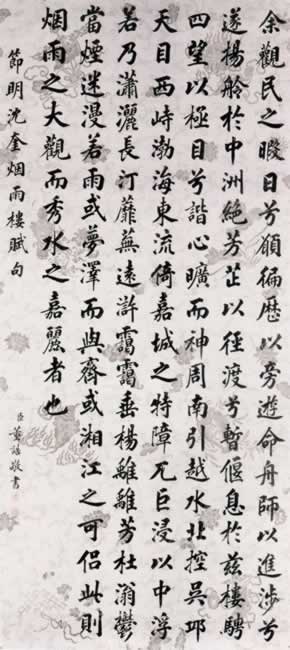 余觀民之暇日兮願徧歷以旁遊命舟師以進涉兮
遂楊舲於中洲絶芳芷以徑渡兮暫偃息於茲樓騁
四望以極目兮諧心曠而神周南引越水北控吳邛
天目西峙渤海東流倚嘉城之特障兀巨浸以中浮
若乃瀟灑長汀蘼蕪遠滸靄靄垂楊離離芳杜滃鬱
當煙迷漫若雨或夢澤而與齊或湘江之可侶此則
烟雨之大觀而秀水之嘉麗者也
節明沈奎烟雨樓賦句
臣董誥敬書